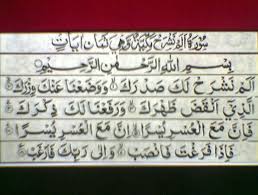 سُورَةُ اَلَمْ نَشْرَحْ مَكِّيَّةٌ وَهِيَ ثَمَانُ اٰيَاتٍ
بِسْمِ اللّٰهِ الرَّحْمٰنِ الرَّحِيْمِ
اَلَمْ نَشْرَحْ لَكَ صَدْرَكَ ۝ وَوَضَعْنَا عَنْكَ وِزْرَكَ ۝
الَّذِيْ اَنْقَضَ ظَهْرَكَ ۝ وَرَفَعْنَا لَكَ ذِكْرَكَ ۝
فَاِنَّ مَعَ الْعُسْرِ يُسْرًا ۝ اِنَّ مَعَ الْعُسْرِ يُسْرًا ۝
فَاِذَا فَرَغْتَ فَانْصَبْ ۝ وَاِلٰى رَبِّكَ فَارْغَبْ ۝